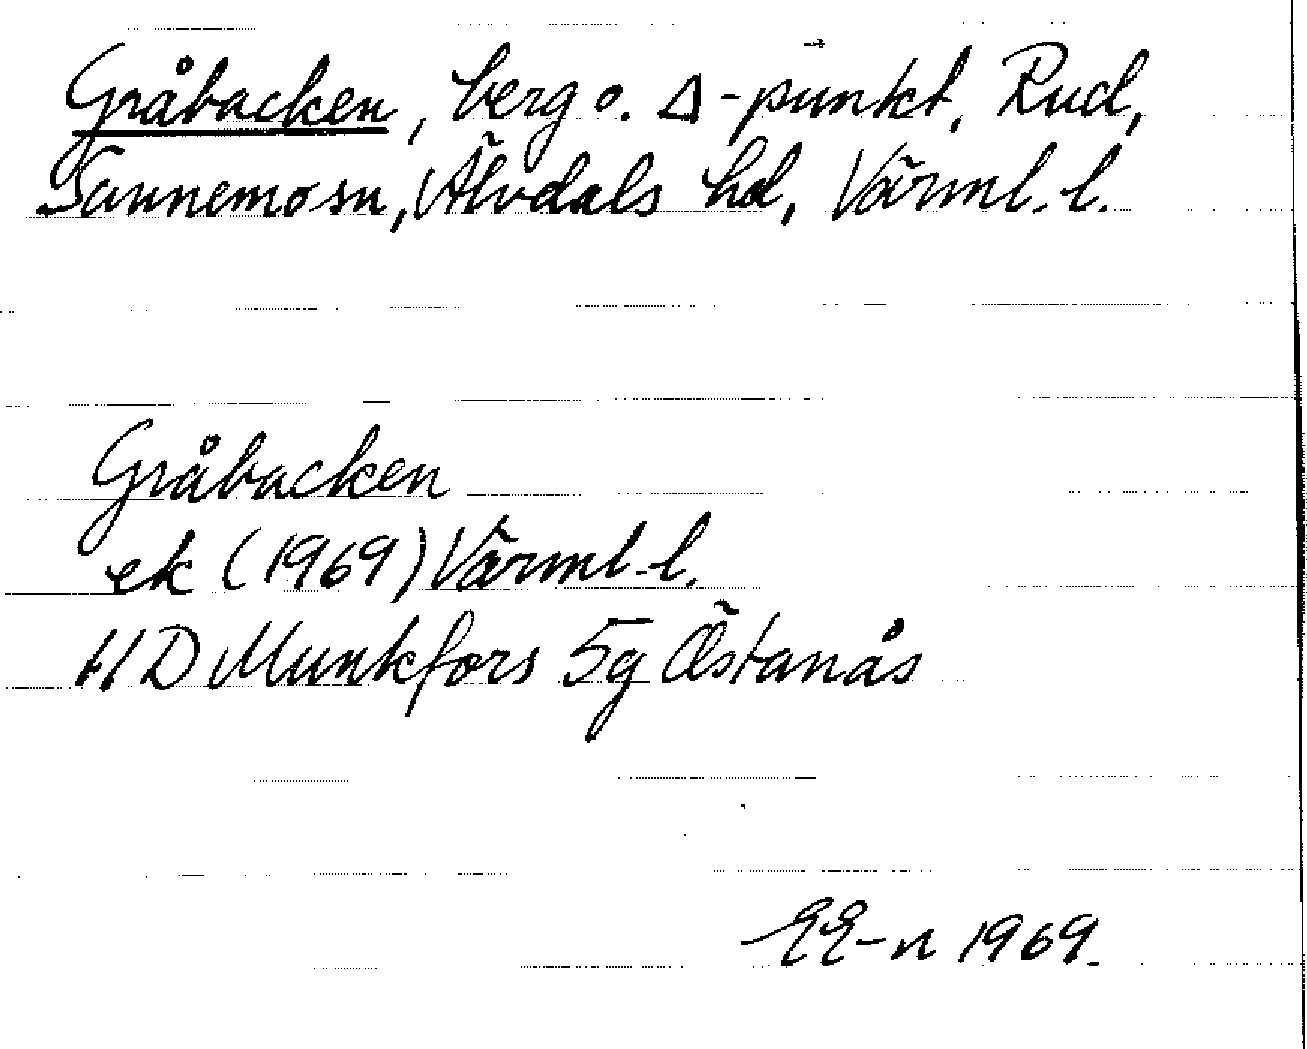 Gråbacken, berg o. Δ-punkt, Rud,
Sunnemo sn, Älvdals hd, Värml. l.
Gråbacken
ek (1969) Värml. l.
11 D Munkfors 5g Östanås
EE-n 1969.